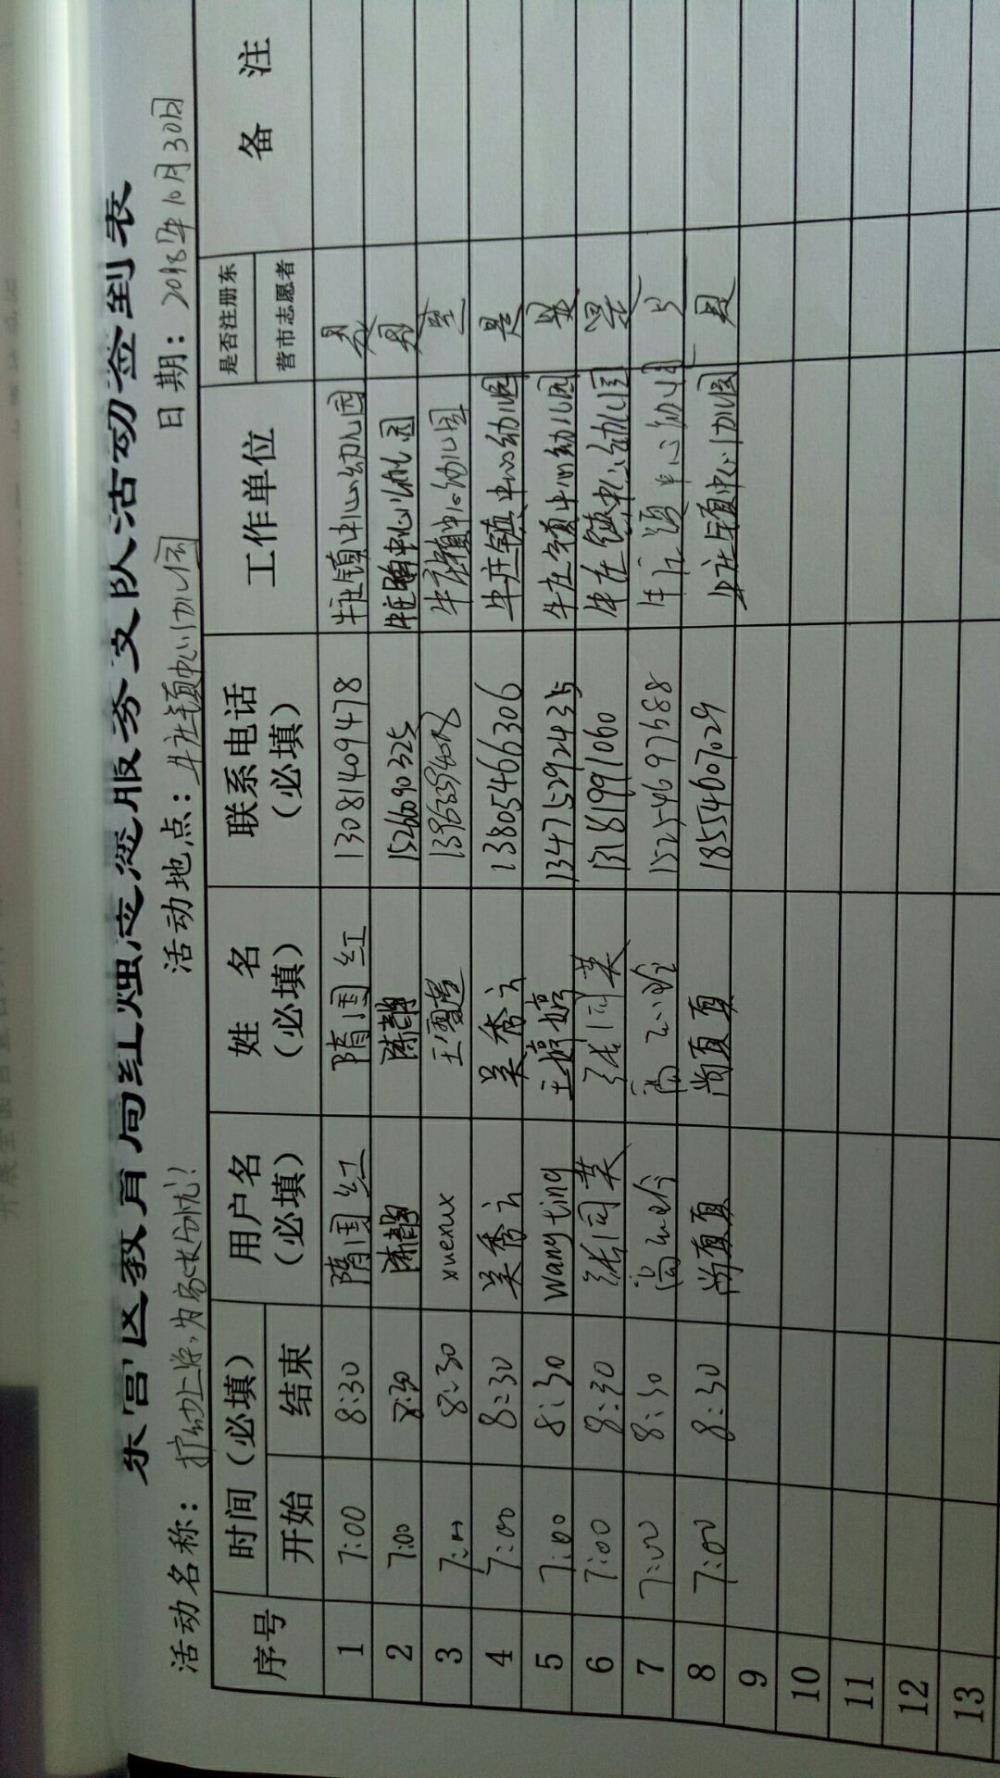 东营区教育局红烛志愿服务支队活动签到表
活动名称：护幼上学,为家长分忧! 活动地点：牛庄镇中心幼儿园 日期：2018年10月30日
序号 时间（必填） 用户名（必填） 姓名（必填） 联系电话（必填） 工作单位 是否注册东营市志愿者 备注
开始 结束
1 7:00 8:30 隋国红 隋国红 13081409478 牛庄镇中心幼儿园 是
2 7:00 8:30 陈静 陈静 15266090325 牛庄镇中心幼儿园 是
3 7:00 8:30 xuexux 王雪 牛庄镇中心幼儿园 是
4 7:00 8:30 吴秀云 吴秀云 13805466306 牛庄镇中心幼儿园 是
5 7:00 8:30 wang ting 王婷婷 13475292435 牛庄镇中心幼儿园 是
6 7:00 8:30 张同英 张同英 13181991060 牛庄镇中心幼儿园 是
7 7:00 8:30 15254697588 牛庄镇中心幼儿园
8 7:00 8:30 尚夏夏 尚夏夏 18554607029 牛庄镇中心幼儿园 是
9
10
11
12
13